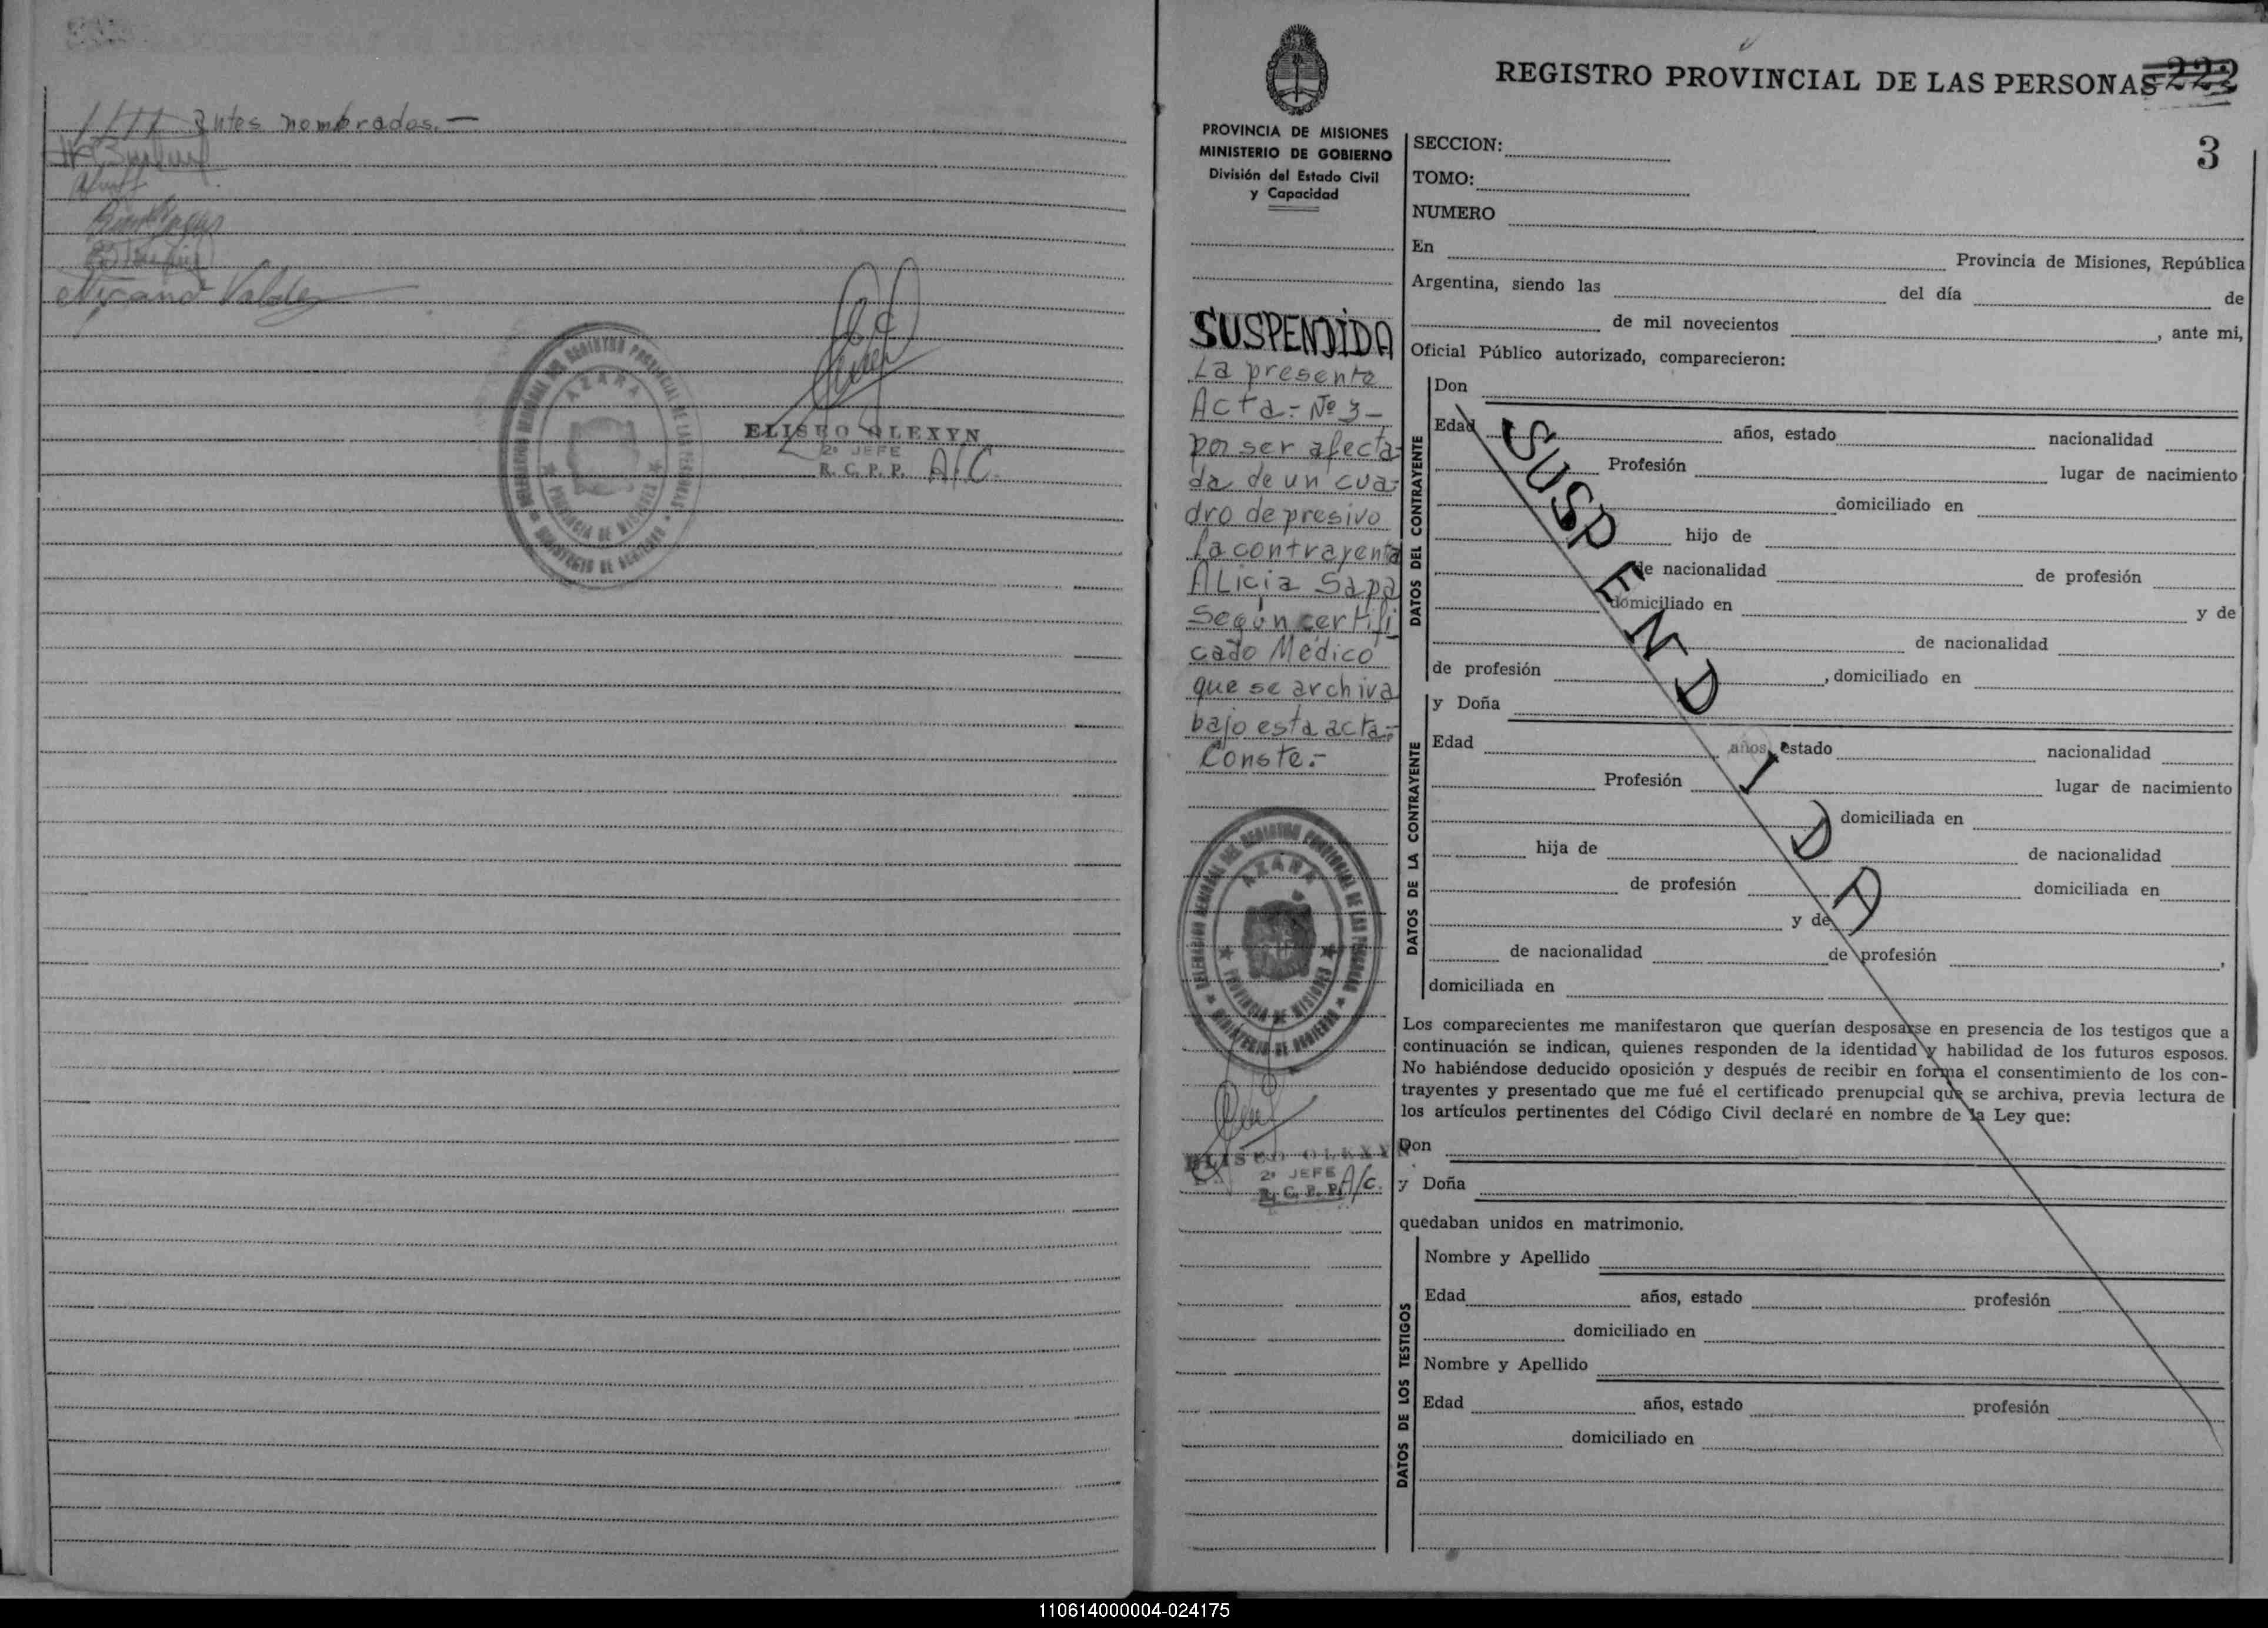 //// antes nombrados.-
Valdez
REGISTRO PROVINCIAL DE LAS PERSONAS
AZARA
PROVINCIA DE MISIONES
MINISTERIO DE GOBIERNO
ELISEO OLEXYN
2º JEFE
R. C. P. P. A/C.
REGISTRO PROVINCIAL DE LAS PERSONAS
222
3
PROVINCIA DE MISIONES
MINISTERIO DE GOBIERNO
División del Estado Civil
y Capacidad
SUSPENDIDA
La presente
Acta:- Nº 3-
por ser afecta-
da de un cua-
dro depresivo
la contrayente
Alicia Sapa
Según certifi
cado Médico
que se archiva
bajo esta acta:-
Conste.-
REGISTRO PROVINCIAL DE LAS PERSONAS
AZARA
PROVINCIA DE MISIONES
MINISTERIO DE GOBIERNO
ELISEO OLEXYN
2º JEFE
R. C. P. P. A/C.
SECCION:
TOMO:
NUMERO
En Provincia de Misiones, República
Argentina, siendo las del día de
de mil novecientos , ante mi,
Oficial Público autorizado, comparecieron:
DATOS DEL CONTRAYENTE
Don
Edad años, estado nacionalidad
Profesión lugar de nacimiento
domiciliado en
hijo de
de nacionalidad de profesión
domiciliado en y de
de nacionalidad
de profesión , domiciliado en
SUSPENDIDA
DATOS DE LA CONTRAYENTE
y Doña
Edad años, estado nacionalidad
Profesión lugar de nacimiento
domiciliada en
hija de de nacionalidad
de profesión domiciliada en
y de
de nacionalidad de profesión ,
domiciliada en
Los comparecientes me manifestaron que querían desposarse en presencia de los testigos que a
continuación se indican, quienes responden de la identidad y habilidad de los futuros esposos.
No habiéndose deducido oposición y después de recibir en forma el consentimiento de los con-
trayentes y presentado que me fué el certificado prenupcial que se archiva, previa lectura de
los artículos pertinentes del Código Civil declaré en nombre de la Ley que:
Don
y Doña
quedaban unidos en matrimonio.
DATOS DE LOS TESTIGOS
Nombre y Apellido
Edad años, estado profesión
domiciliado en
Nombre y Apellido
Edad años, estado profesión
domiciliado en
110614000004-024175